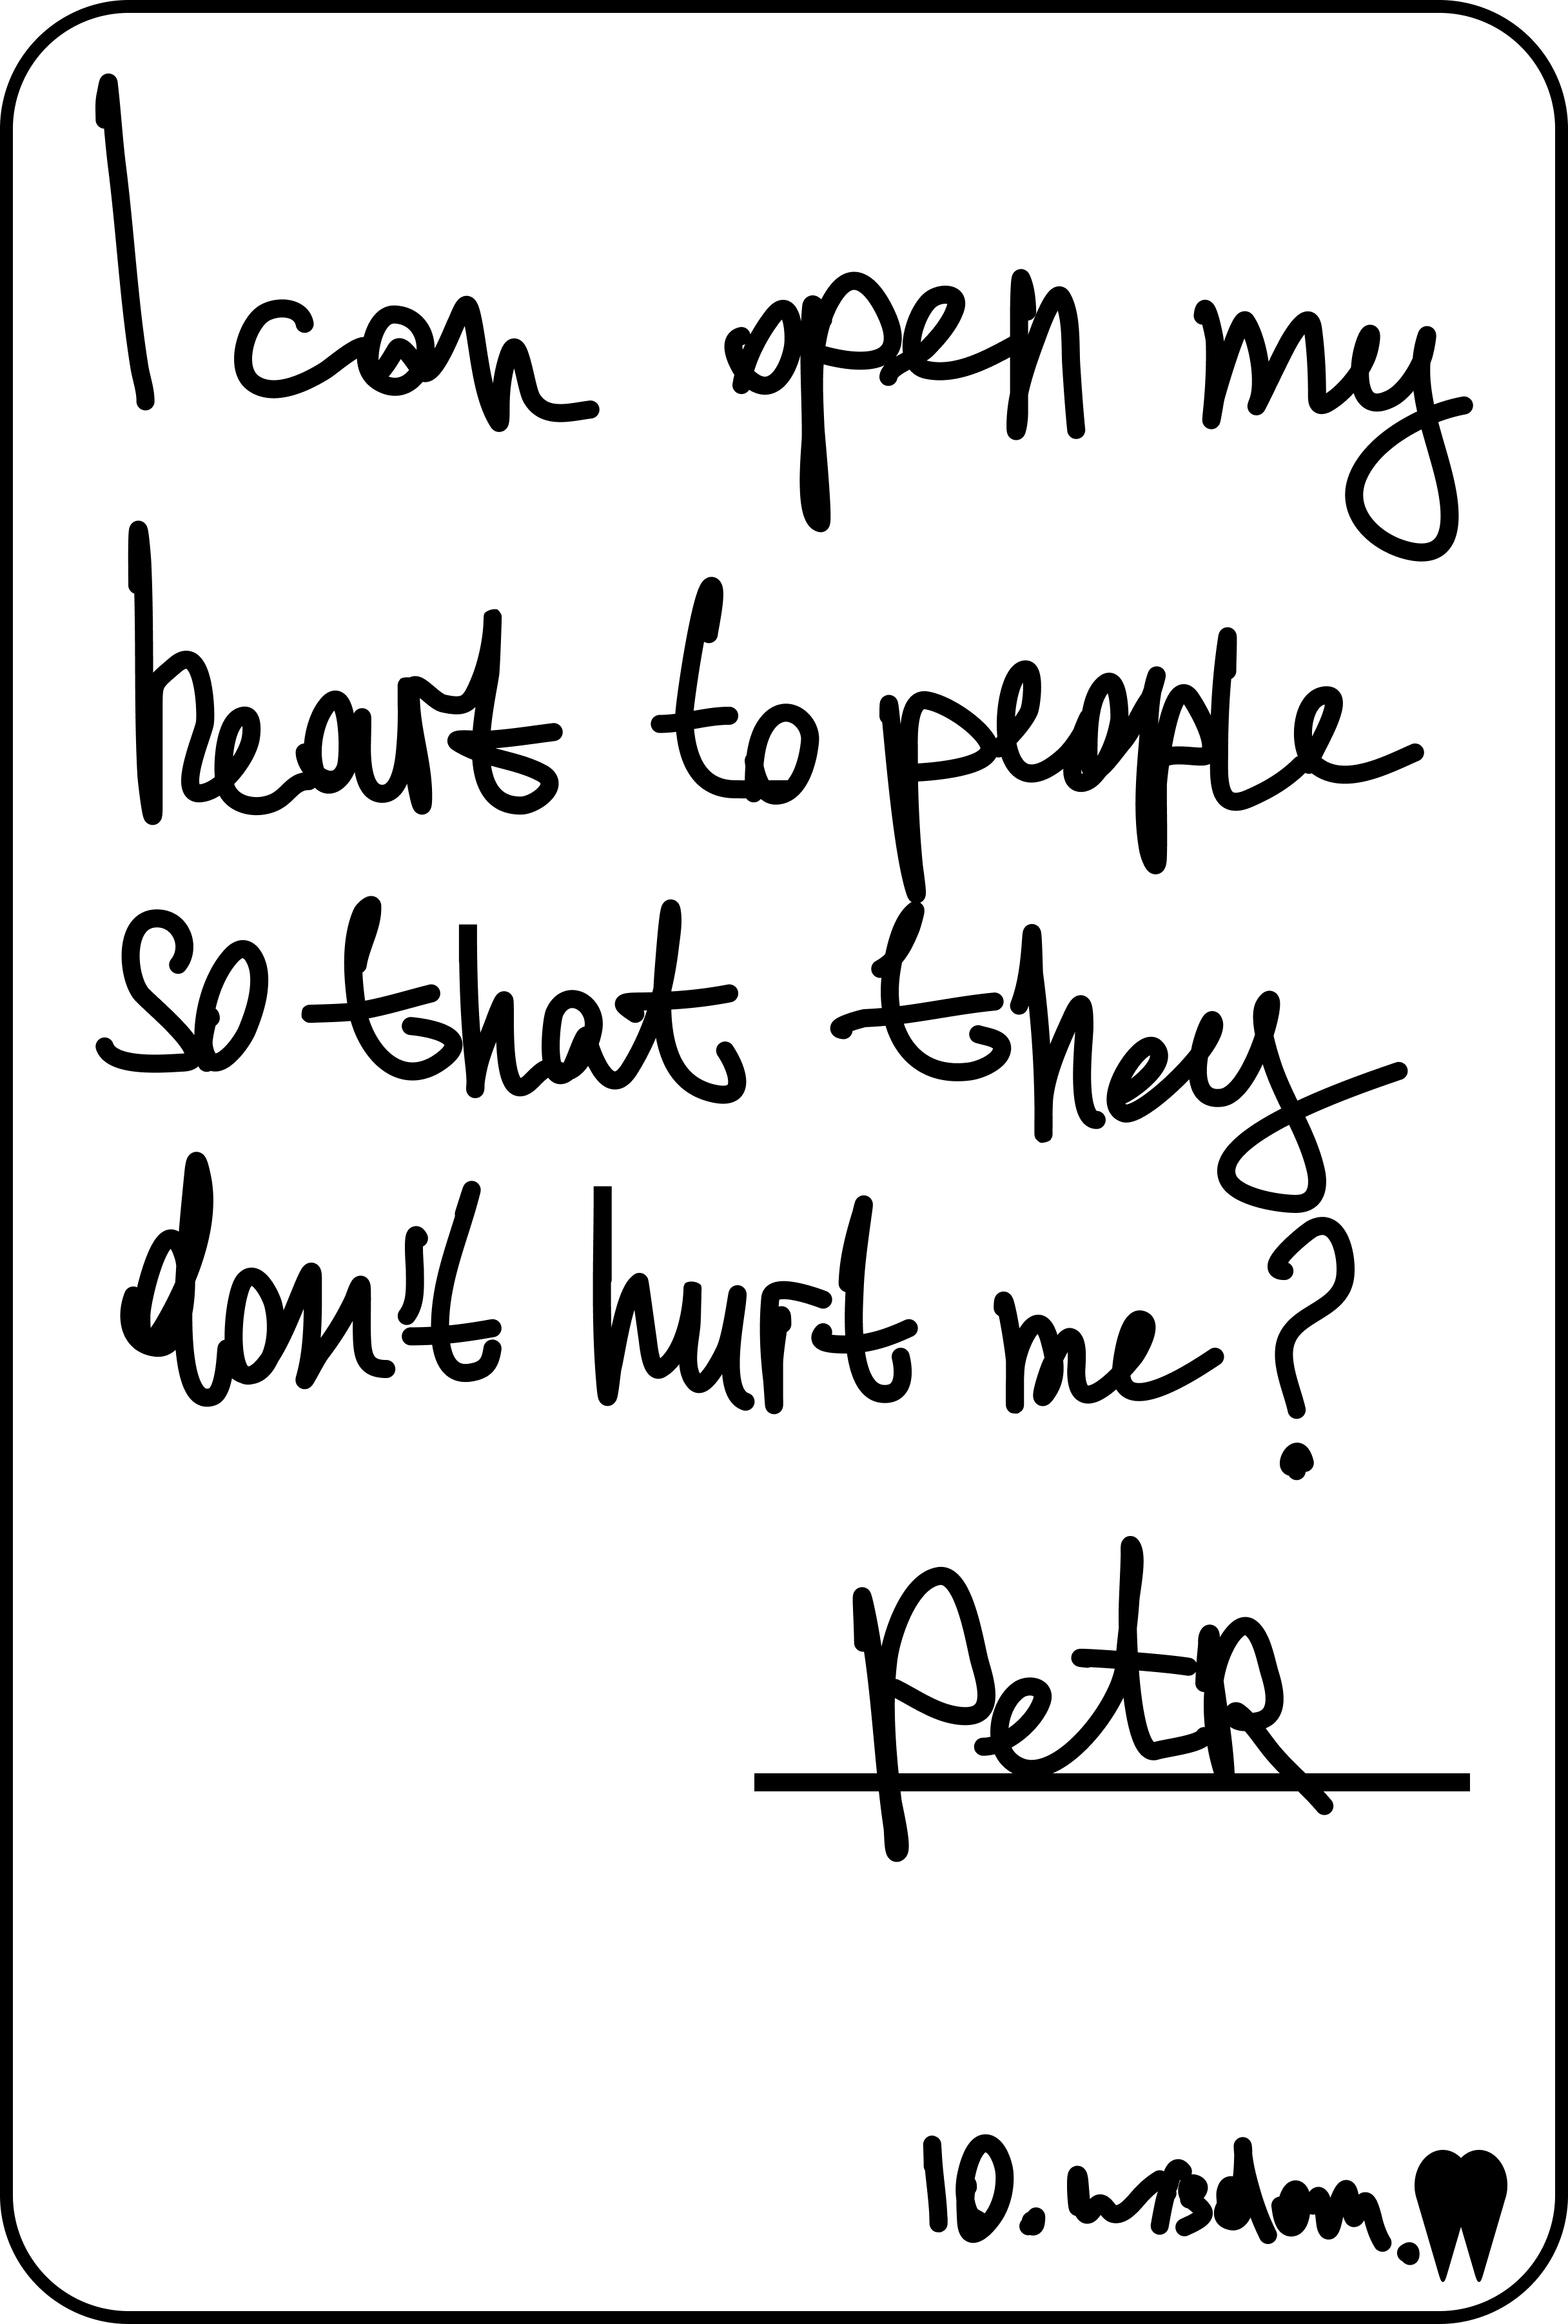 I can open my
heart to people
so that they
don't hurt me?
Petr
10. wisdom.